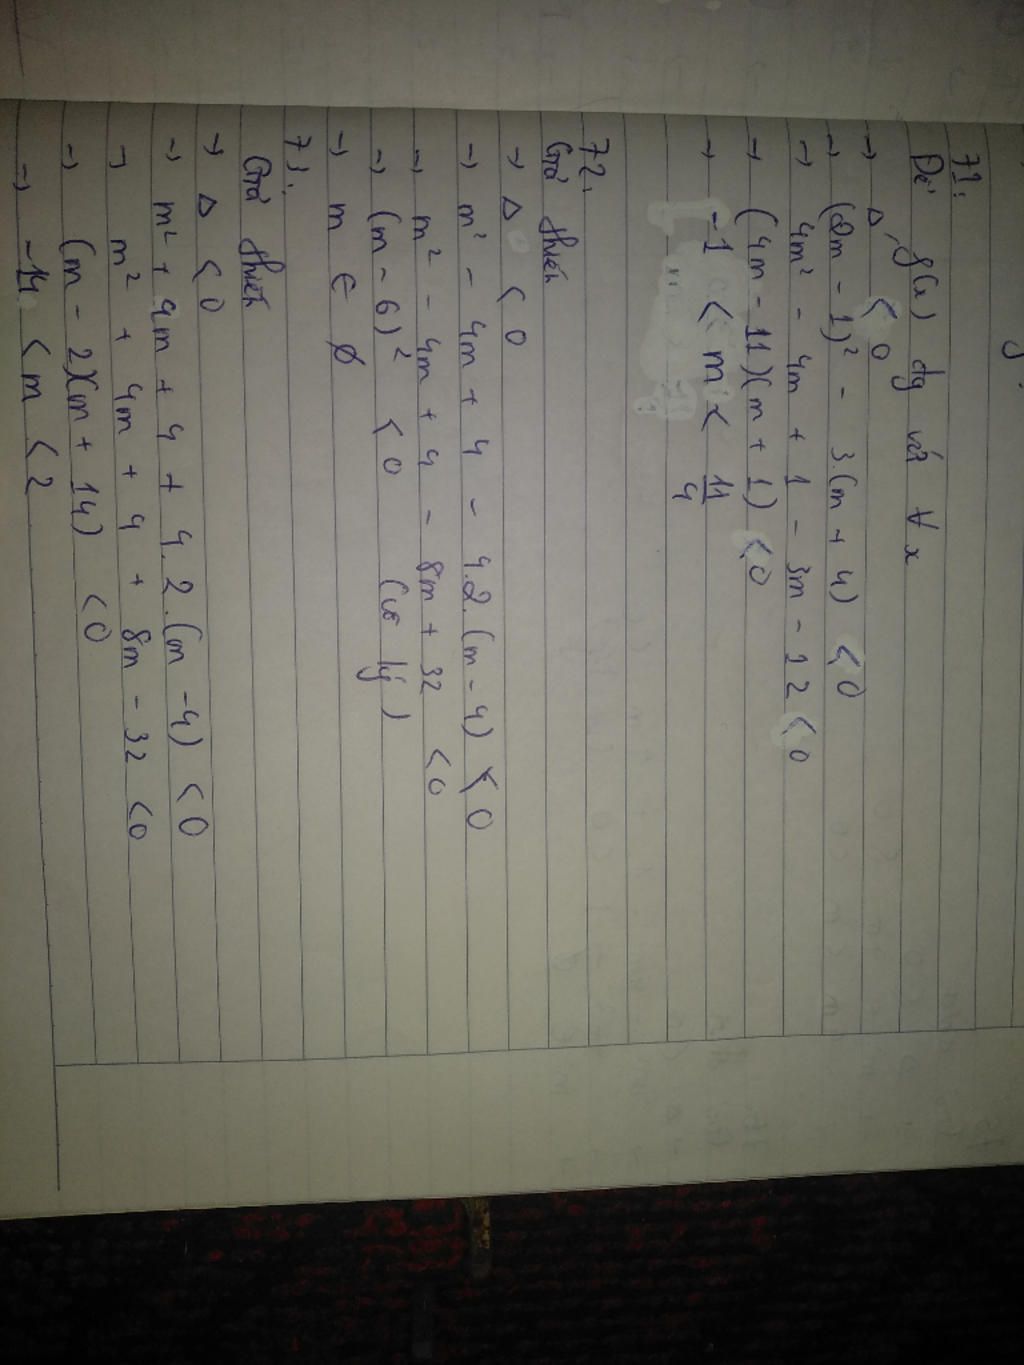 71:
Để g(x) đg với ∀ x
→ Δ' < 0
→ (2m - 1)² - 3.(m + 4) < 0
→ 4m² - 4m + 1 - 3m - 12 < 0
→ (4m - 11)(m + 1) < 0
→ -1 < m < 11/4
72.
Giả thiết
→ Δ < 0
→ m² - 4m + 4 - 4.2.(m - 4) < 0
→ m² - 4m + 4 - 8m + 32 < 0
→ (m - 6)² < 0 (vô lý)
→ m ∈ ∅
73.
Giả thiết
→ Δ < 0
→ m² + 4m + 4 + 4.2.(m - 4) < 0
→ m² + 4m + 4 + 8m - 32 < 0
→ (m - 2)(m + 14) < 0
→ -14 < m < 2